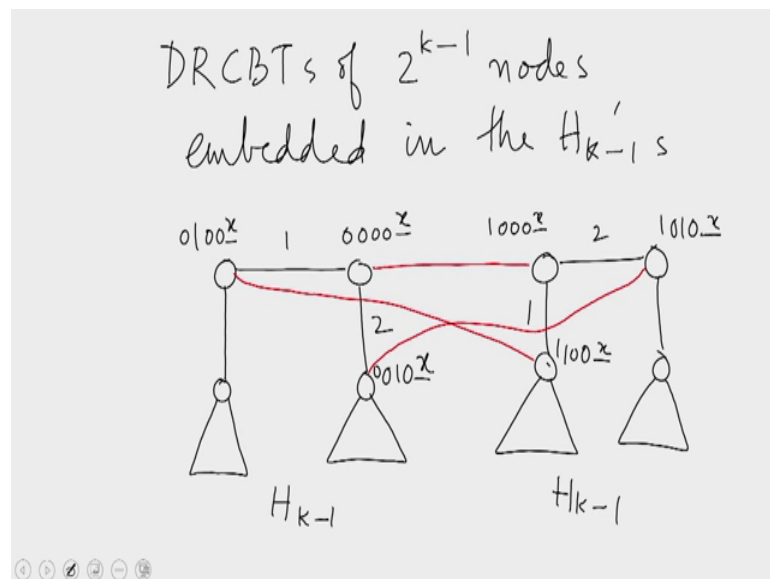 DRCBTs of 2^{k-1} nodes
embedded in the H_{k-1}'s
0100x 1 0000x 1000x 2 1010x
2 1
0010x 1100x
H_{k-1} H_{k-1}